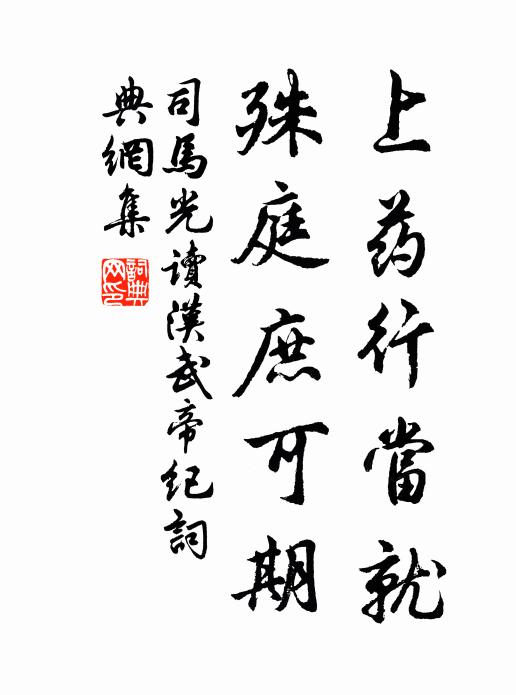 上药行當就
殊庭庶可期
司馬光讀漢武帝紀詞
典網集
詞典
网印